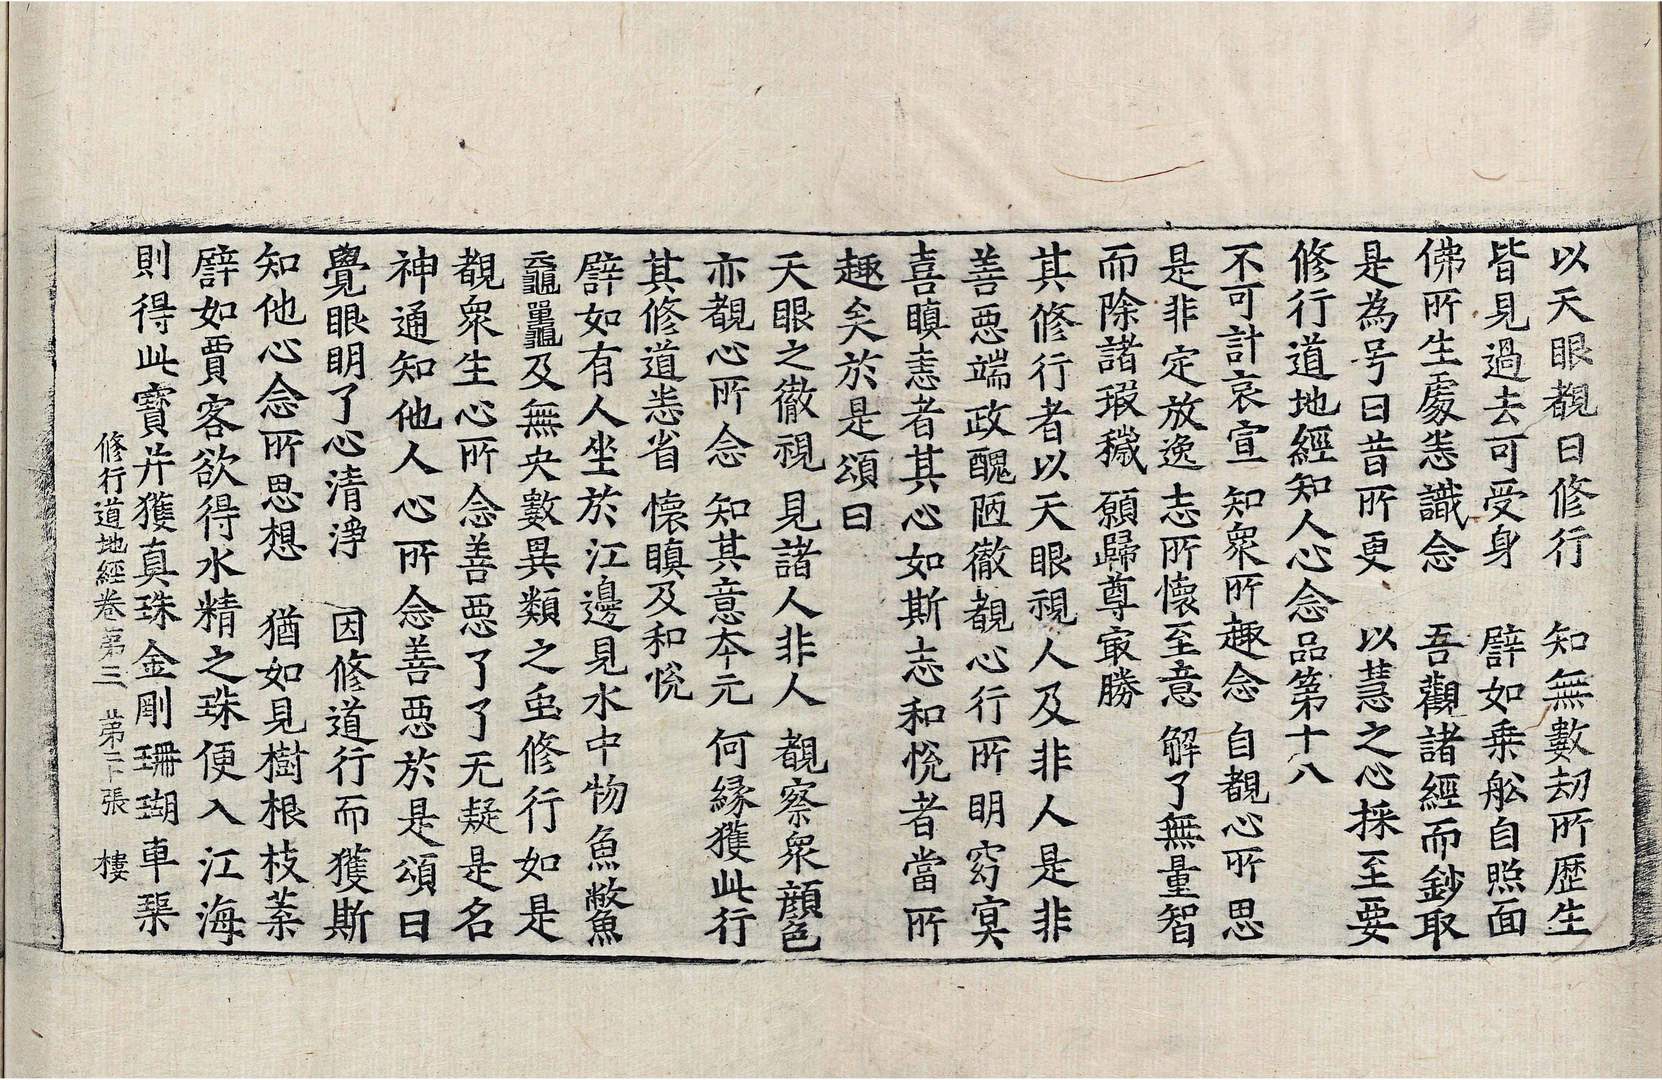 以天眼覩曰修行　知無數劫所歷生
皆見過去可受身　譬如乗舩自照面
佛所生處悉識念　吾觀諸經而鈔取
是為号曰昔所更　以慧之心採至要
修行道地經知人心念品第十八
不可計哀宣　知衆所趣念　自覩心所思
是非定放逸　志所懷至意　解了無量智
而除諸瑕穢　願歸尊冣勝
其修行者以天眼視人及非人是非
善惡端政醜陋徹覩心行所明窈冥
喜瞋恚者其心如斯志和悅者當所
趣矣於是頌曰
天眼之徹視　見諸人非人　覩察衆顔色
亦覩心所念　知其意本元　何縁獲此行
其修道悉省　懷瞋及和悅
譬如有人坐於江邊見水中物魚鼈
黿鼉及無央數異類之虫修行如是
覩衆生心所念善惡了了无疑是名
神通知他人心所念善惡於是頌曰
覺眼明了心清淨　因修道行而獲斯
知他心念所思想　猶如見樹根枝葉
譬如賈客欲得水精之珠便入江海
則得此寶并獲真珠金剛珊瑚車𤦲
修行道地經卷第三　第二十張　樓